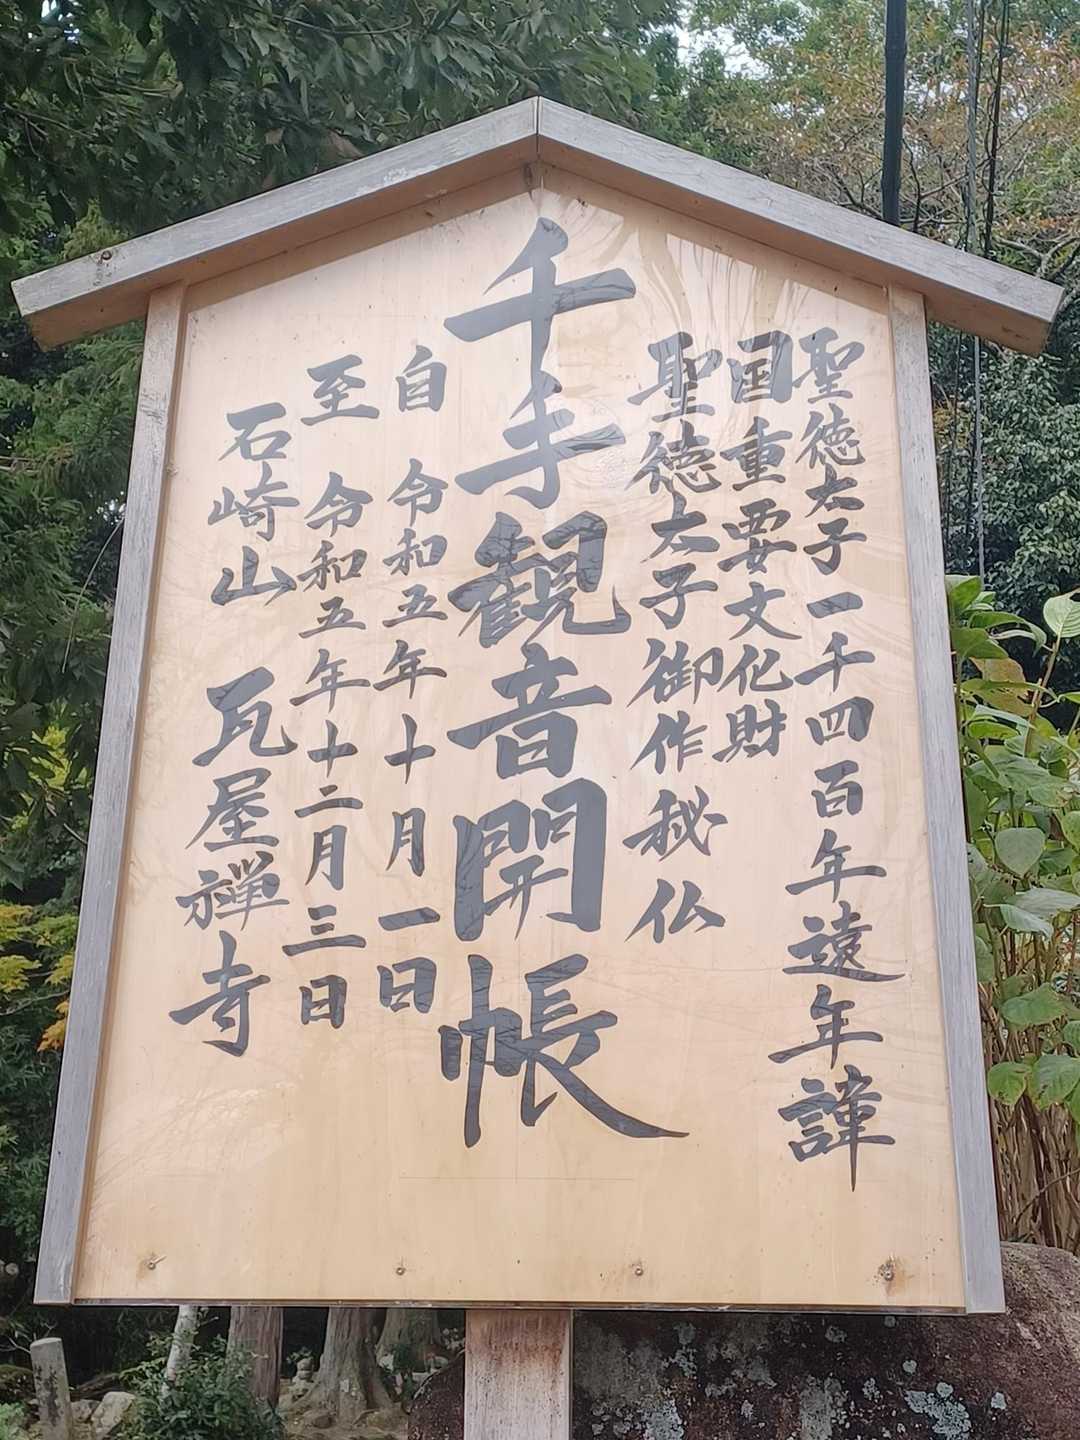 聖徳太子一千四百年遠年諱
国重要文化財
聖徳太子御作秘仏
千手観音開帳
自 令和五年十月一日
至 令和五年十二月三日
石崎山 瓦屋禅寺